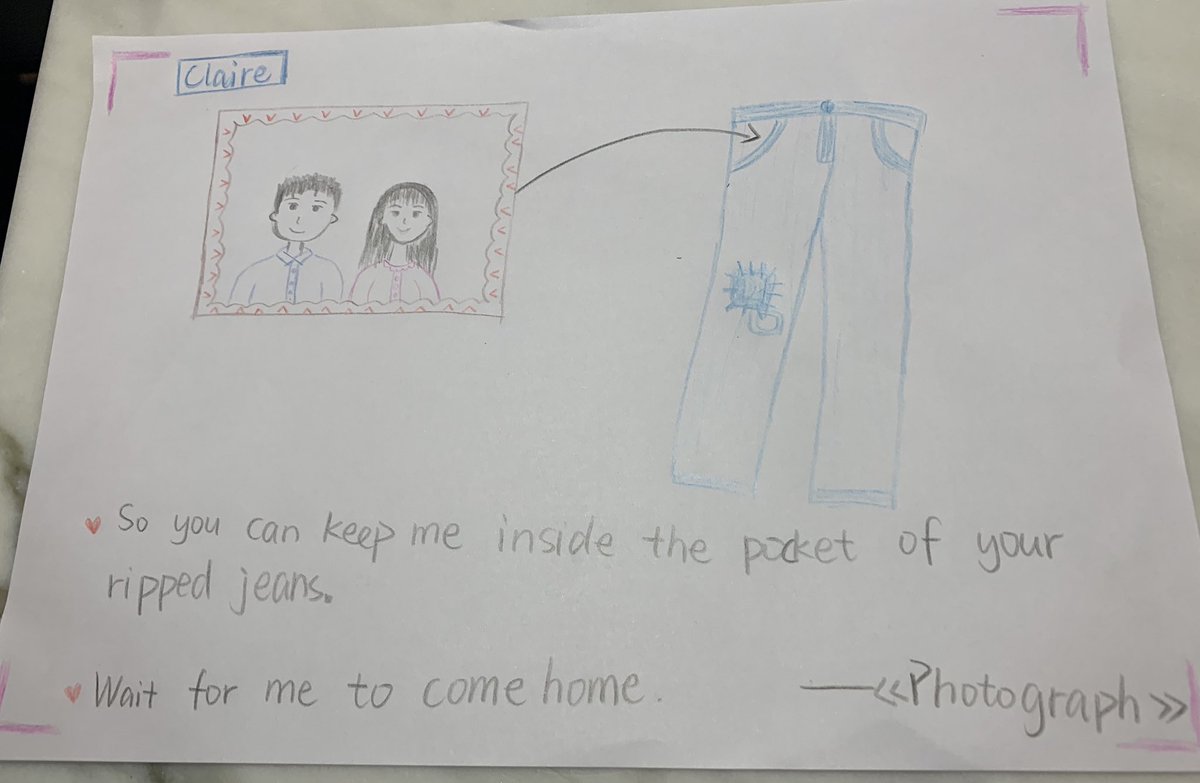 Claire
So you can keep me inside the pocket of your
ripped jeans.
Wait for me to come home.
——《Photograph》